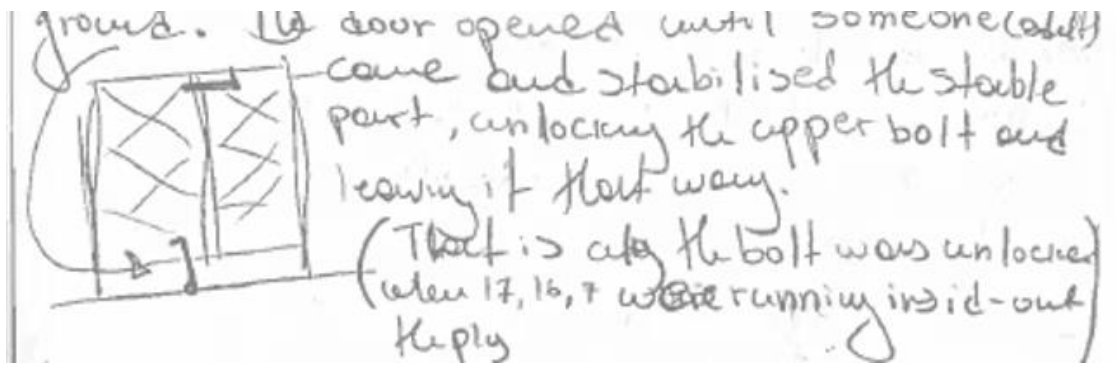 ground. The door opened until someone (adult)
came and stabilised the stable
part, unlocking the upper bolt and
leaving it that way.
(That is why the bolt was unlocked
when 17, 16, 7 were running insid-out
the ply)